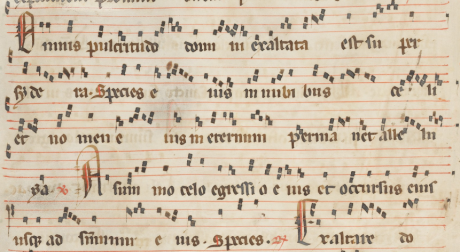 Omnis pulcritudo domini exaltata est su per
sy de ra. Species e ius in nubi bus ce li
et no men e ius in eternum perma net alle lu
ya. A sum mo celo egressi o e ius et occursus eius
usq; ad summum e ius. Species. Exaltare do